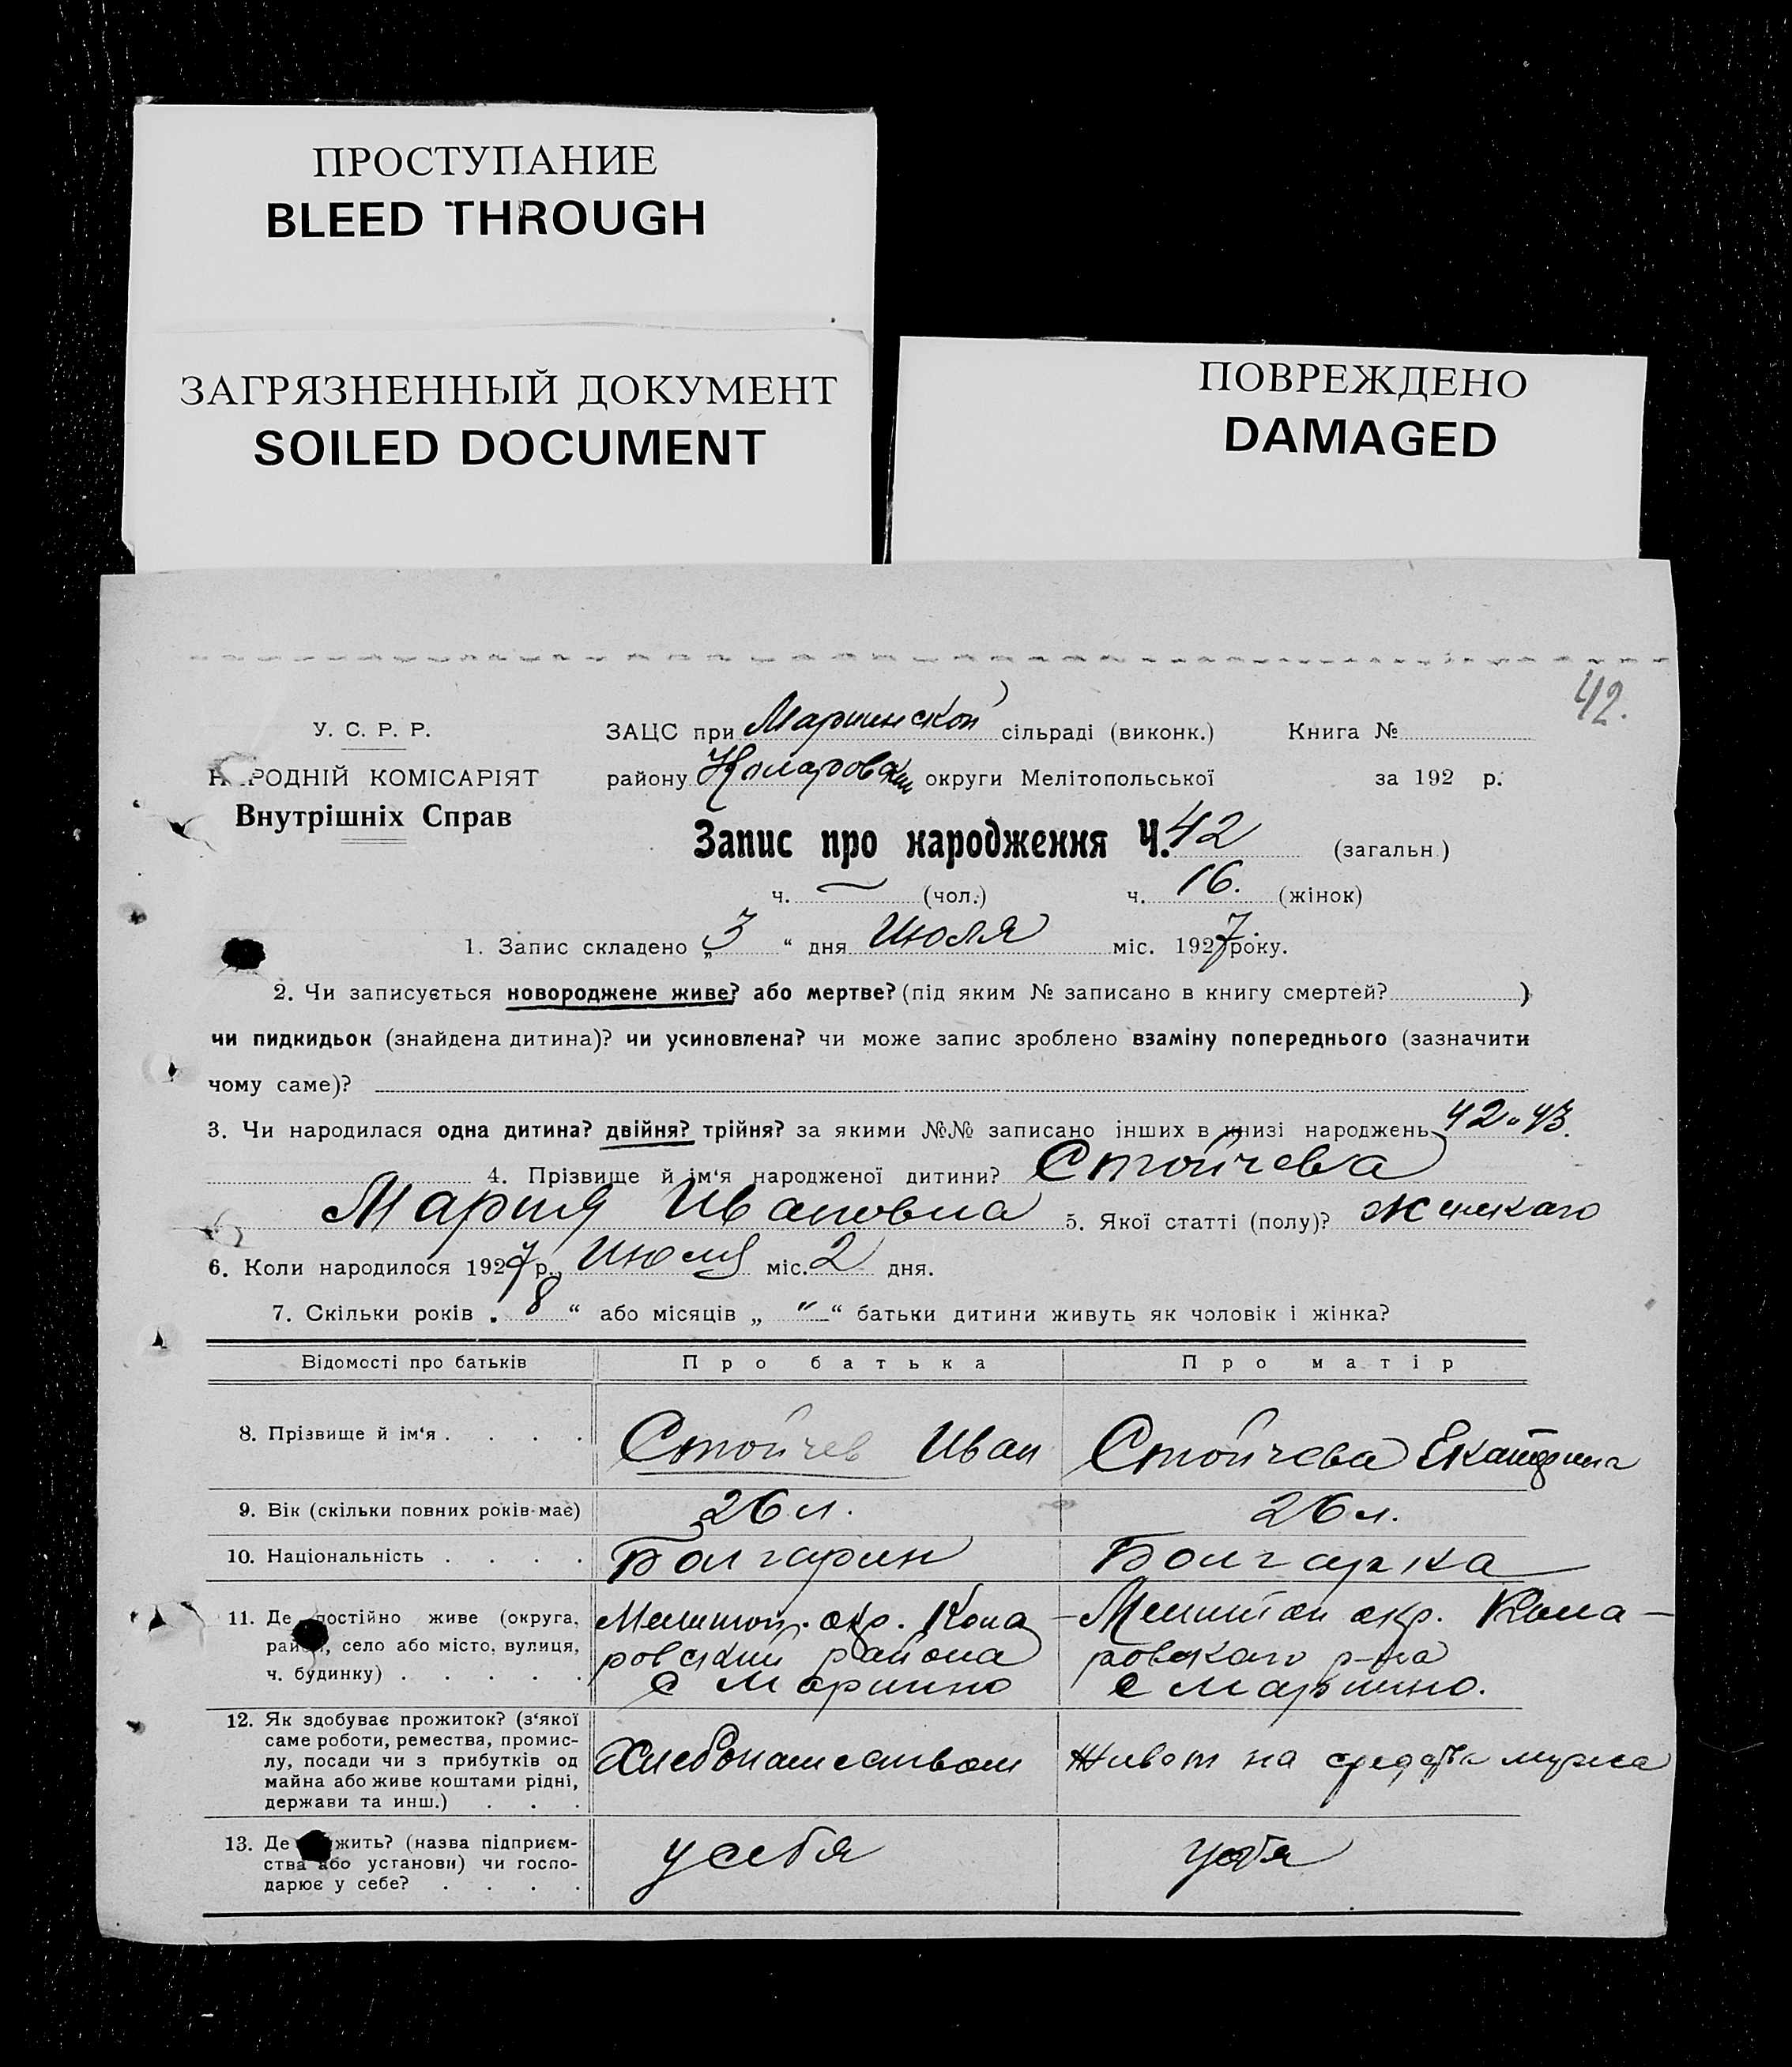 ПРОСТУПАНИЕ
BLEED THROUGH
ЗАГРЯЗНЕННЫЙ ДОКУМЕНТ
SOILED DOCUMENT
ПОВРЕЖДЕНО
DAMAGED
42.
У. С. Р. Р.
НРОДНІЙ КОМІСАРІЯТ
Внутрішніх Справ
ЗАЦС при Мариинской сільраді (виконк.) Книга №
району округи Мелітопольської за 192 р.
Запис про народження Ч. 42 (загальн.)
ч. — (чол.) ч. 16. (жінок)
1. Запис складено „3“ дня Июля міс. 1927 року.
2. Чи записується новороджене живе? або мертве? (під яким № записано в книгу смертей? )
чи пидкидьок (знайдена дитина)? чи усиновлена? чи може запис зроблено взаміну попереднього (зазначити
чому саме)?
3. Чи народилася одна дитина? двійня? трійня? за якими №№ записано інших в книзі народжень 42 и 43.
4. Прізвище й ім‘я народженої дитини? Стойчева
Мария Ивановна 5. Якої статті (полу)? женскаго
6. Коли народилося 1927 р. Июля міс. 2 дня.
7. Скільки років „8“ або місяців „ " “ батьки дитини живуть як чоловік і жінка?
Відомості про батьків Про батька Про матір
8. Прізвище й ім‘я . . . . Стойчев Иван Стойчева Екатерина
9. Вік (скільки повних років-має) 26 л. 26 л.
10. Національність . . . . Болгарин Болгарка
11. Де постійно живе (округа,
район, село або місто, вулиця,
ч. будинку) . . . . .
Мелитоп. окр. Кола-
ровский района
с Мариино
Мелитоп окр. Кола-
ровскаго р-на
с Мариино.
12. Як здобуває прожиток? (з‘якої
саме роботи, ремества, промис-
лу, посади чи з прибутків од
майна або живе коштами рідні,
держави та инш.) . . .
Хлебопашеством
Живет на средства мужа
13. Де жить? (назва підприєм-
ства або установи) чи госпо-
дарює у себе? . . . .
у себя
у себя